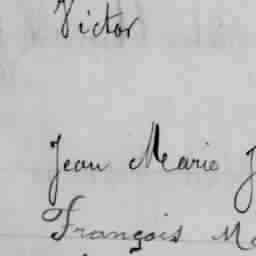 Victor
Jean Marie J
François Ma